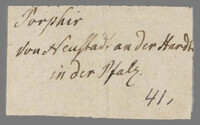 Porphir
von Neustadt an der Hardt
in der Pfalz.
41,